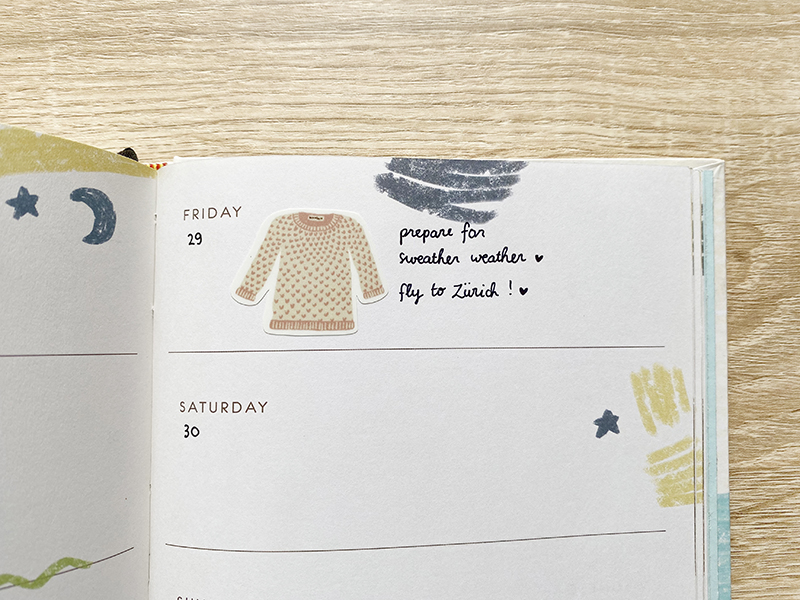 FRIDAY
29
prepare for
sweather weather ♥
fly to Zürich ! ♥
SATURDAY
30